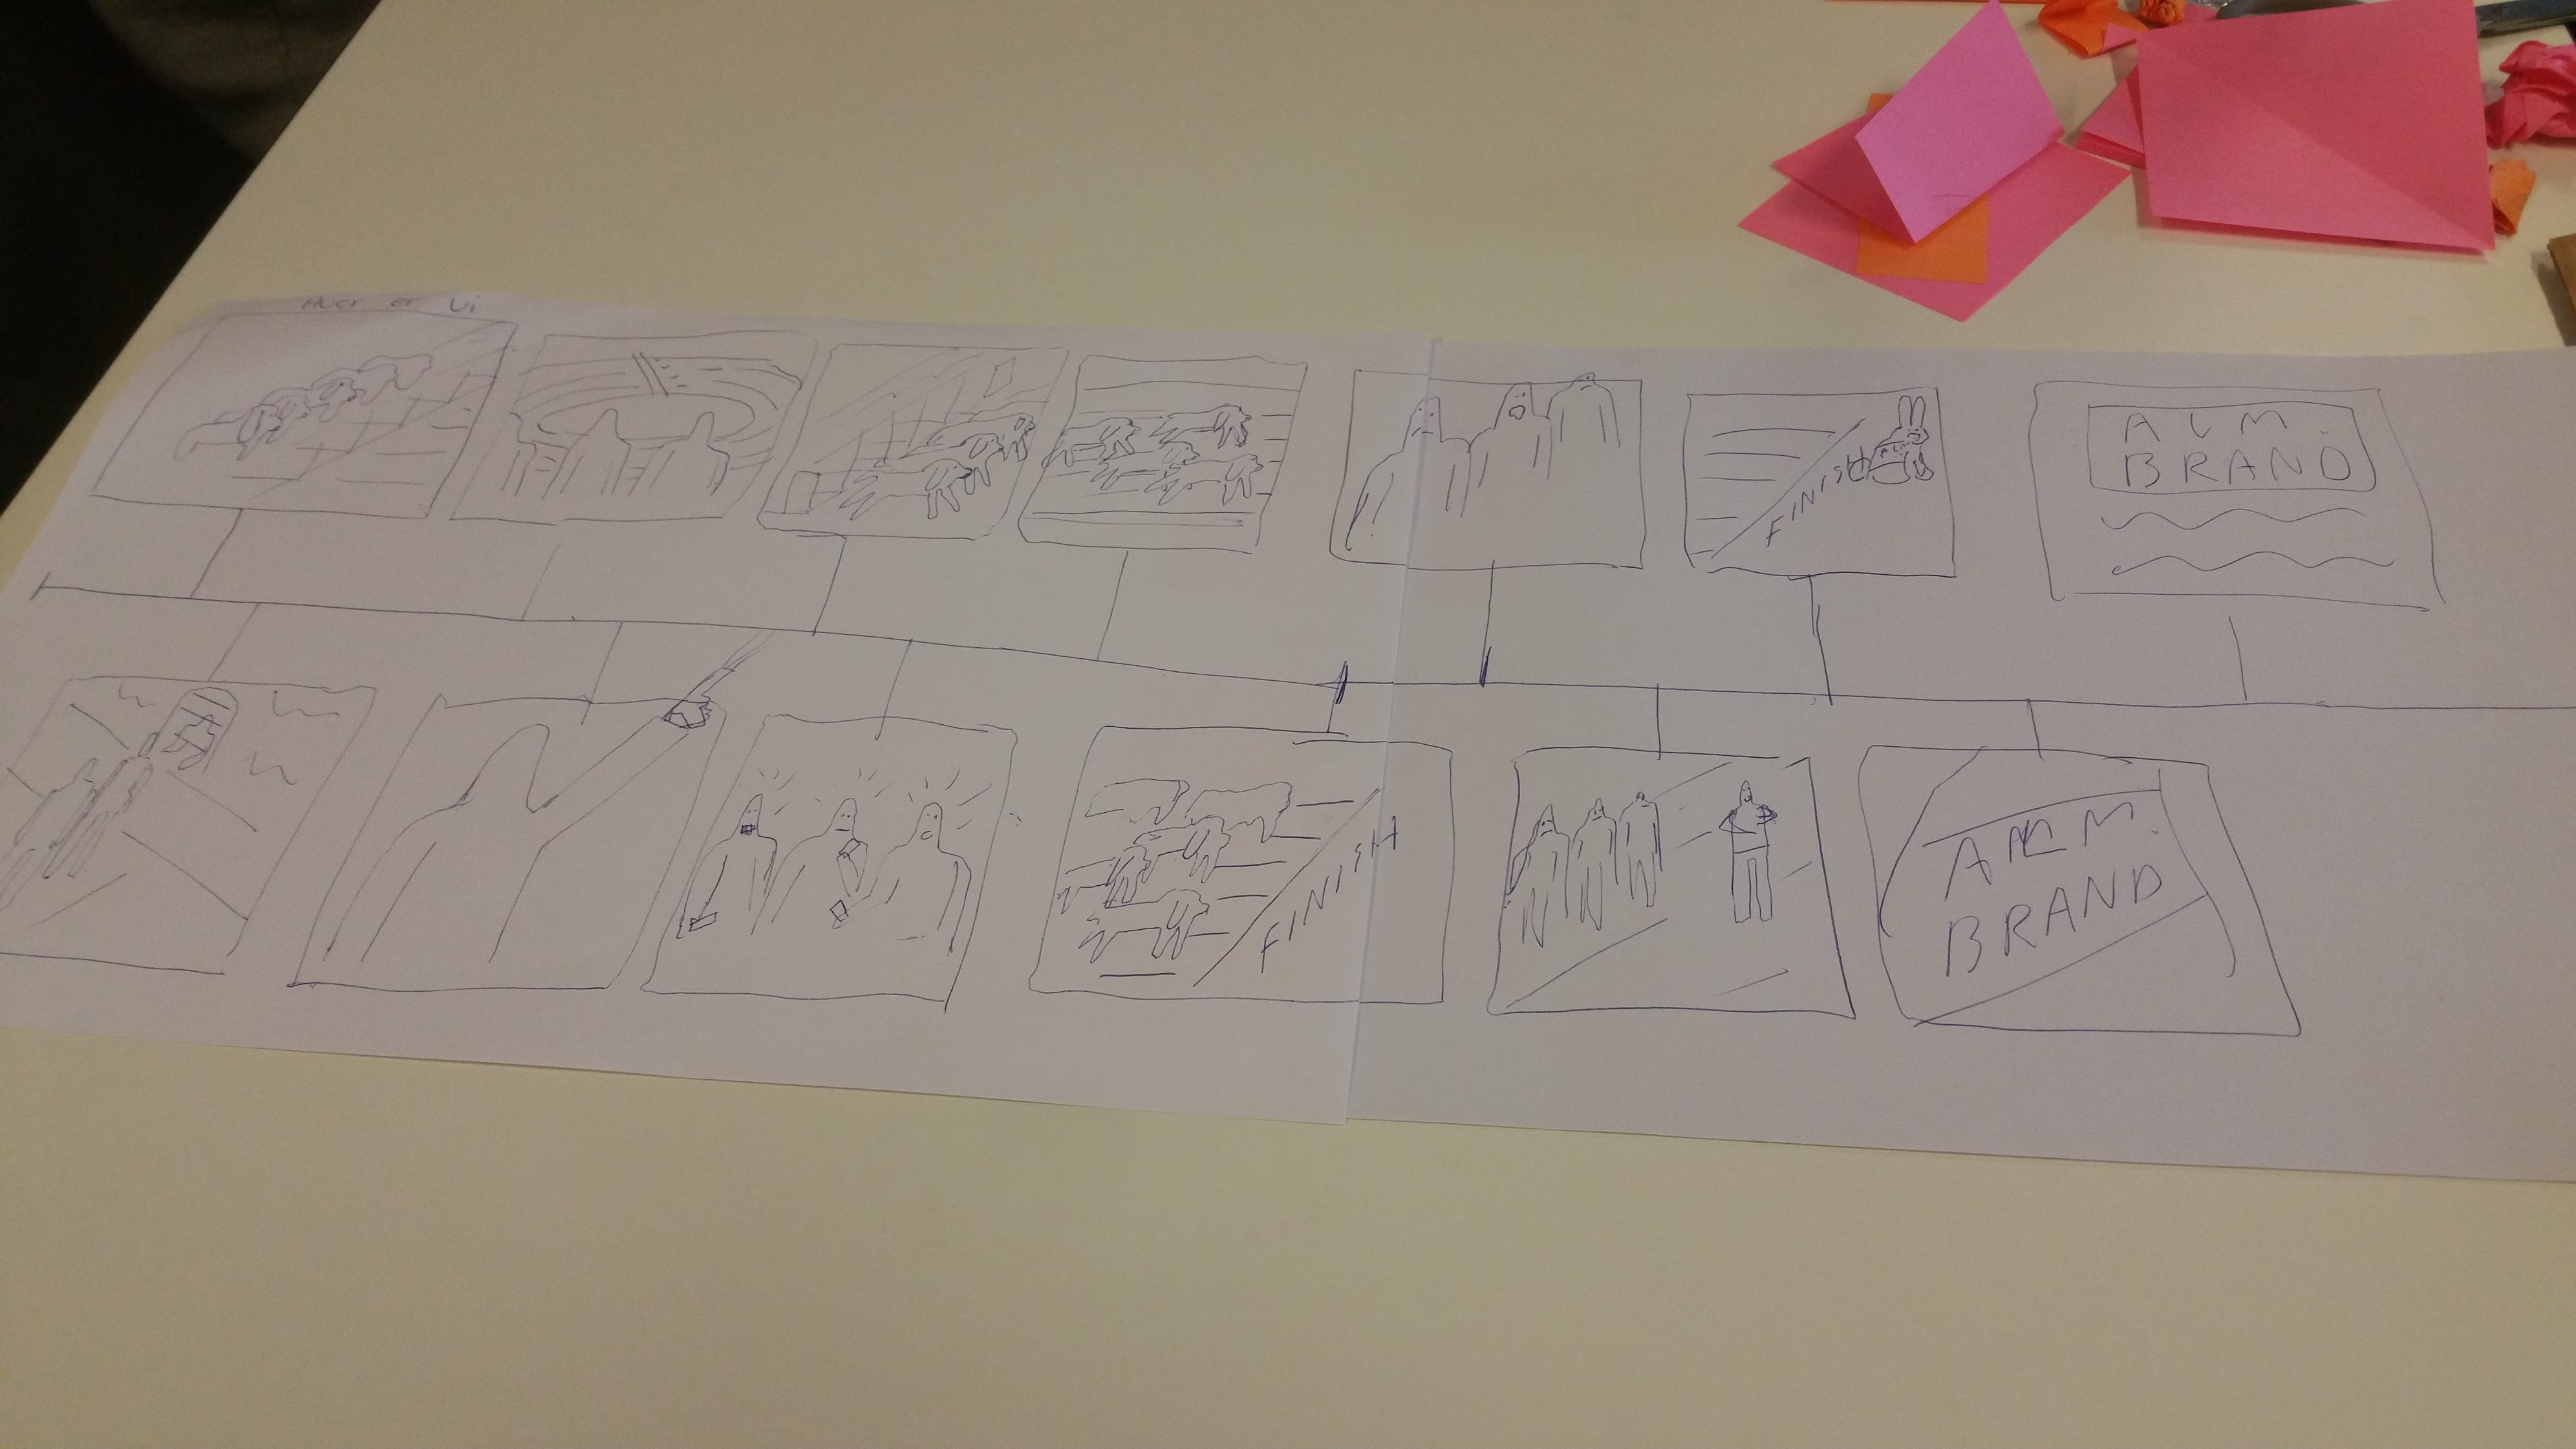 Hvor er vi
FINISH
ALM
BRAND
FINISH
ALM.
BRAND